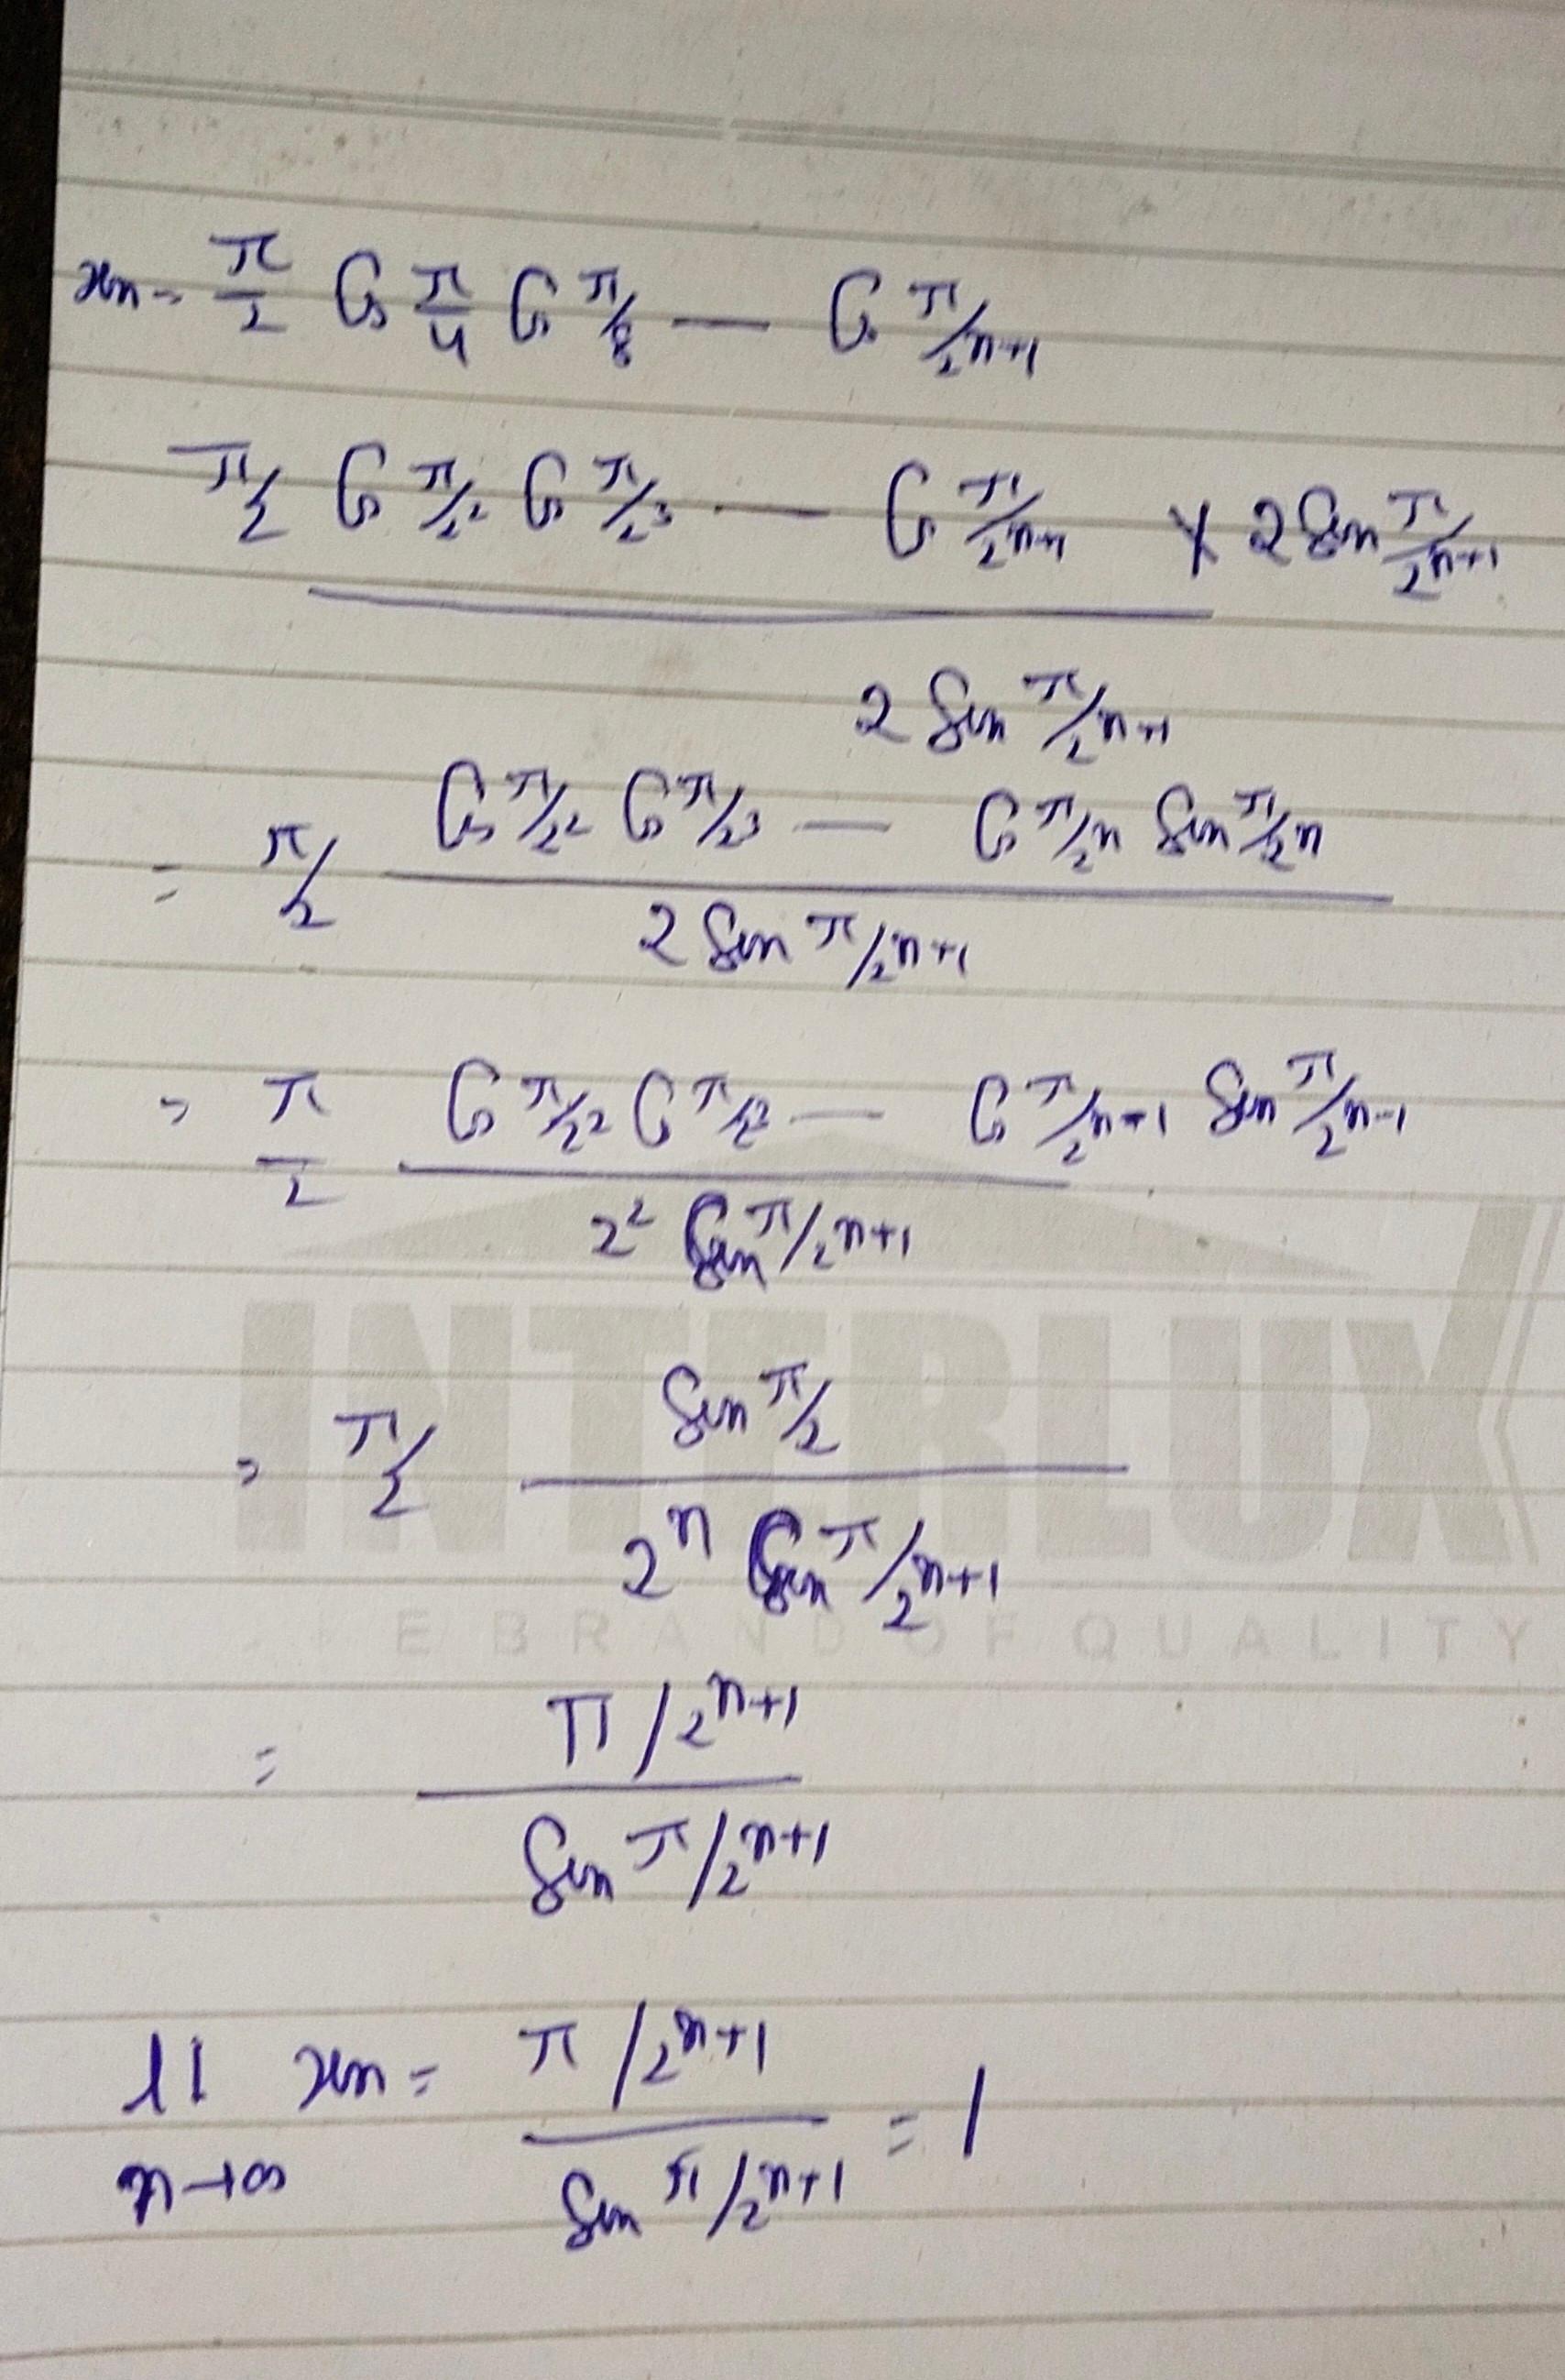 xn = π/2 Cos π/4 Cos π/8 — Cos π/2^n+1
π/2 Cos π/2^2 Cos π/2^3 - — Cos π/2^n+1 × 2 Sin π/2^n+1
2 Sin π/2^n+1
= π/2 Cos π/2^2 Cos π/2^3 — Cos π/2^n Sin π/2^n
2 Sin π/2^n+1
= π/2 Cos π/2^2 Cos π/2^3 — Cos π/2^n-1 Sin π/2^n-1
2^2 Sin π/2^n+1
INTERLUX
= π/2 Sin π/2
2^n Sin π/2^n+1
E BRAND OF QUALITY
= π/2^n+1
Sin π/2^n+1
lt xn = π/2^n+1 = 1
n→∞ Sin π/2^n+1